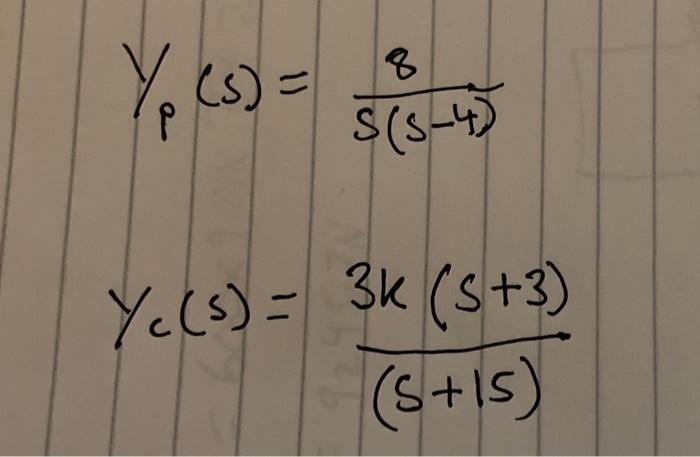 Yp(s) = 8
S(s-4)
Yc(s) = 3K (S+3)
(S+15)